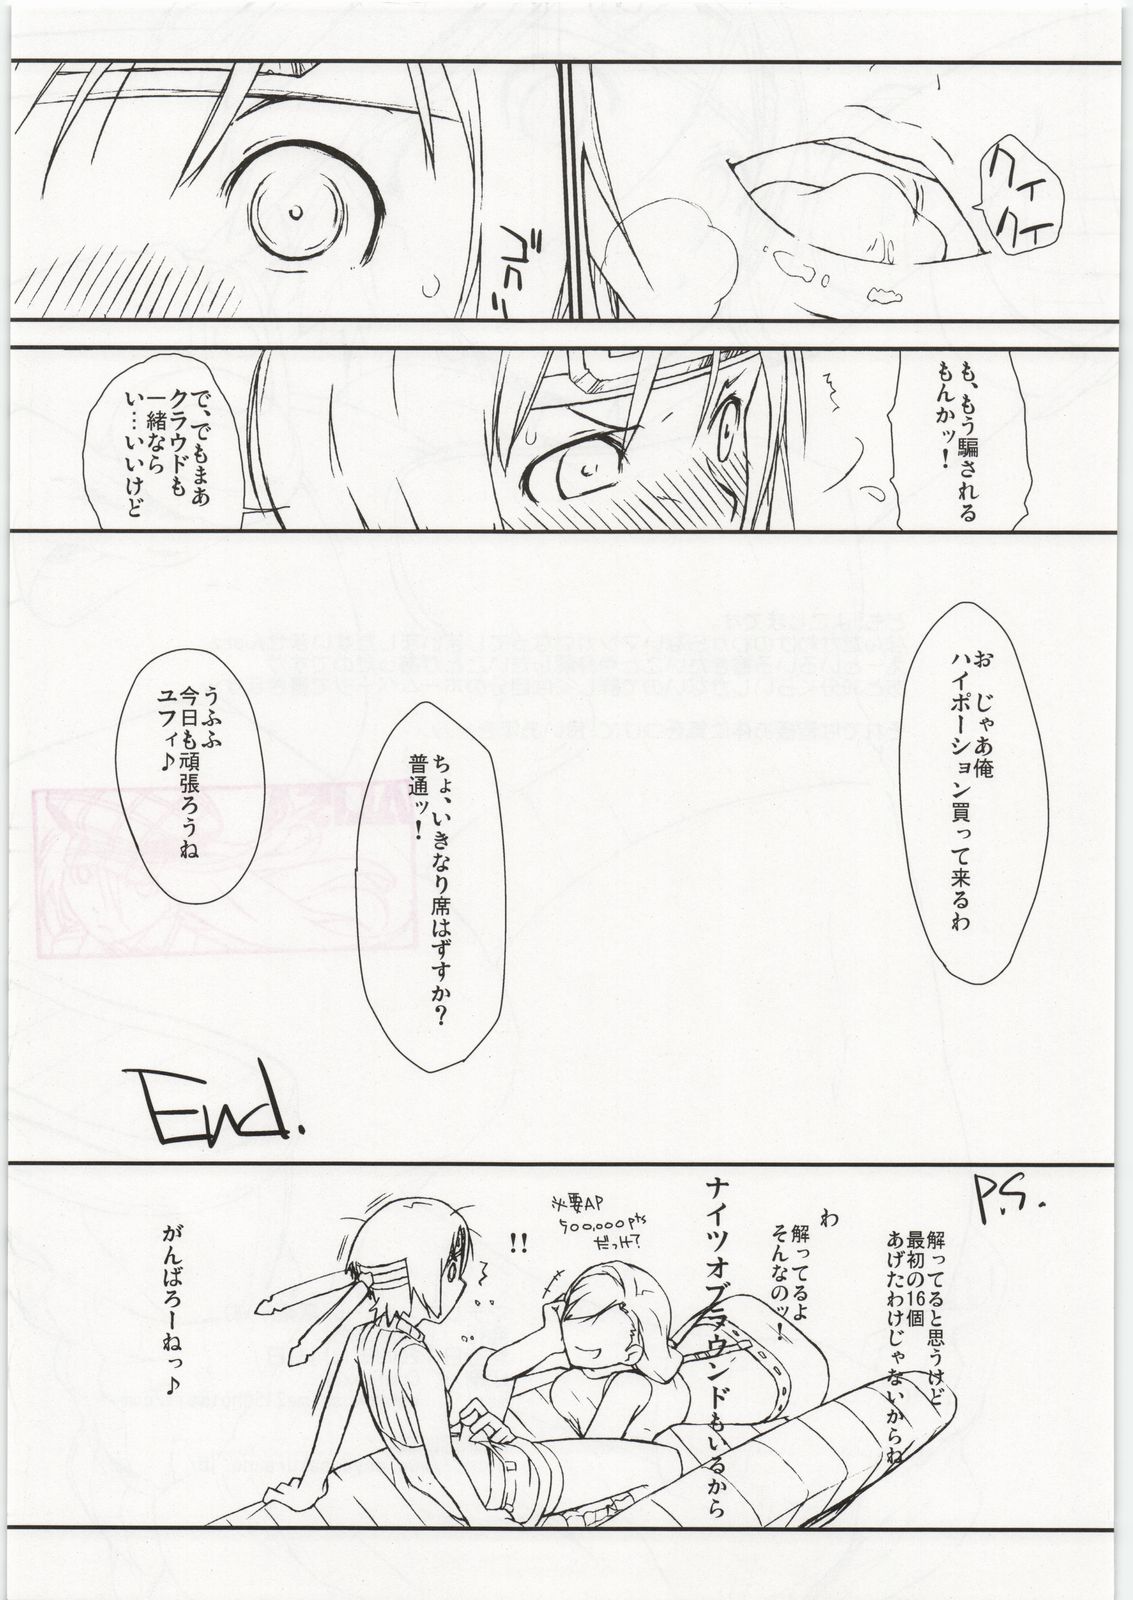 クイ
クイ
ビクッ
も、もう騙される
もんかッ！
で、でもまあ
クラウドも
一緒なら
い…いいけど
お じゃあ俺
ハイポーション買って来るわ
ちょ、いきなり席はずすか？
普通ッ！
うふふ
今日も頑張ろうね
ユフィ♪
End.
P.S.
解ってると思うけど
最初の16個
あげたわけじゃないからね
わ
解ってるよ
そんなのッ！
ナイツオブラウンドもいるから
必要AP
500,000pts
だっけ？
!!
がんばろーねっ♪